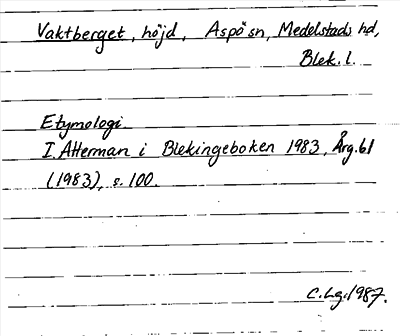 Vaktberget, höjd, Aspö sn, Medelstads hd,
Blek. l.
Etymologi
I. Atterman i Blekingeboken 1983, Årg. 61
(1983), s. 100.
C. Lg. 1987.